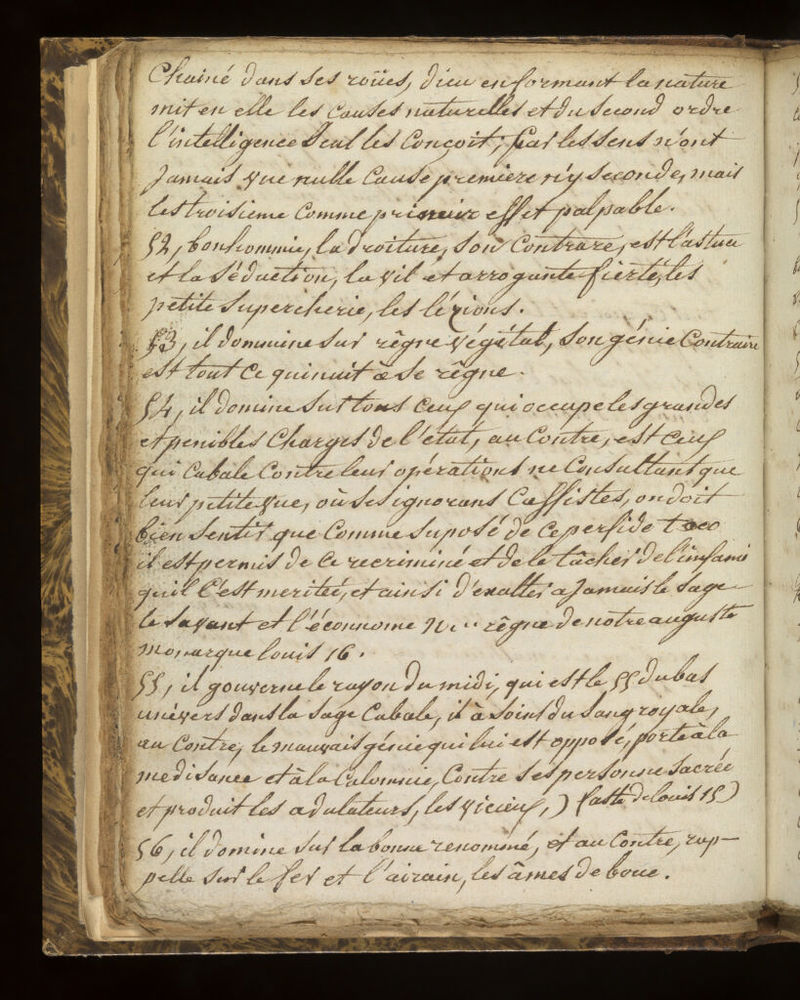 Chainé dans ses roües, dieu en formant la nature
mit en elle les causes naturelles et du second ordre
l'intelligence seul les conçoit, car les sens n'ont
jamais vue nulle cause premiere n'y seconde, mais
les troisieme comme effet palpable.
52, bonhommie, la droiture, son contrare, est l'astuce
et la séduction, la vil et arrogante fierté, les
petite supercherie, les lézions.
53, il dommine sur règne végétal, son génie contraire
est tout ce qui nuit a se règne.
54, il domine sur tous ceux qui occupe les grandes
et penibles charges de l'état, au contre, est ceux
qui cabale contre leur opérations ne consultant que
leur petite vue, où ses ignorans Caffistes, on doit
bien sentir que comme suposé de ce perfide
il est permis de ce recriminé et de le tâcher de l'infami
qu'il c'est merité, et ainsi d'exalter a jamais le sage
le savant et l'économe règne de notre auguste
monarque louis 16.
55, il gouverne le rayon du midi, qui est le 55 du bas
univers dans la sage Cabale, il à soins du sang royale,
au contre, le mauvais génie qui lui est opposé, porte à la
medisance et à la calomnie, contre ses personne sacrée
et produit les adulateurs, les vicieux,) (faste de louis 15)
56, il domine sur la bonne renommé, et au contre, rap-
pelle sur le fer et l'airain, les âmes de boue.